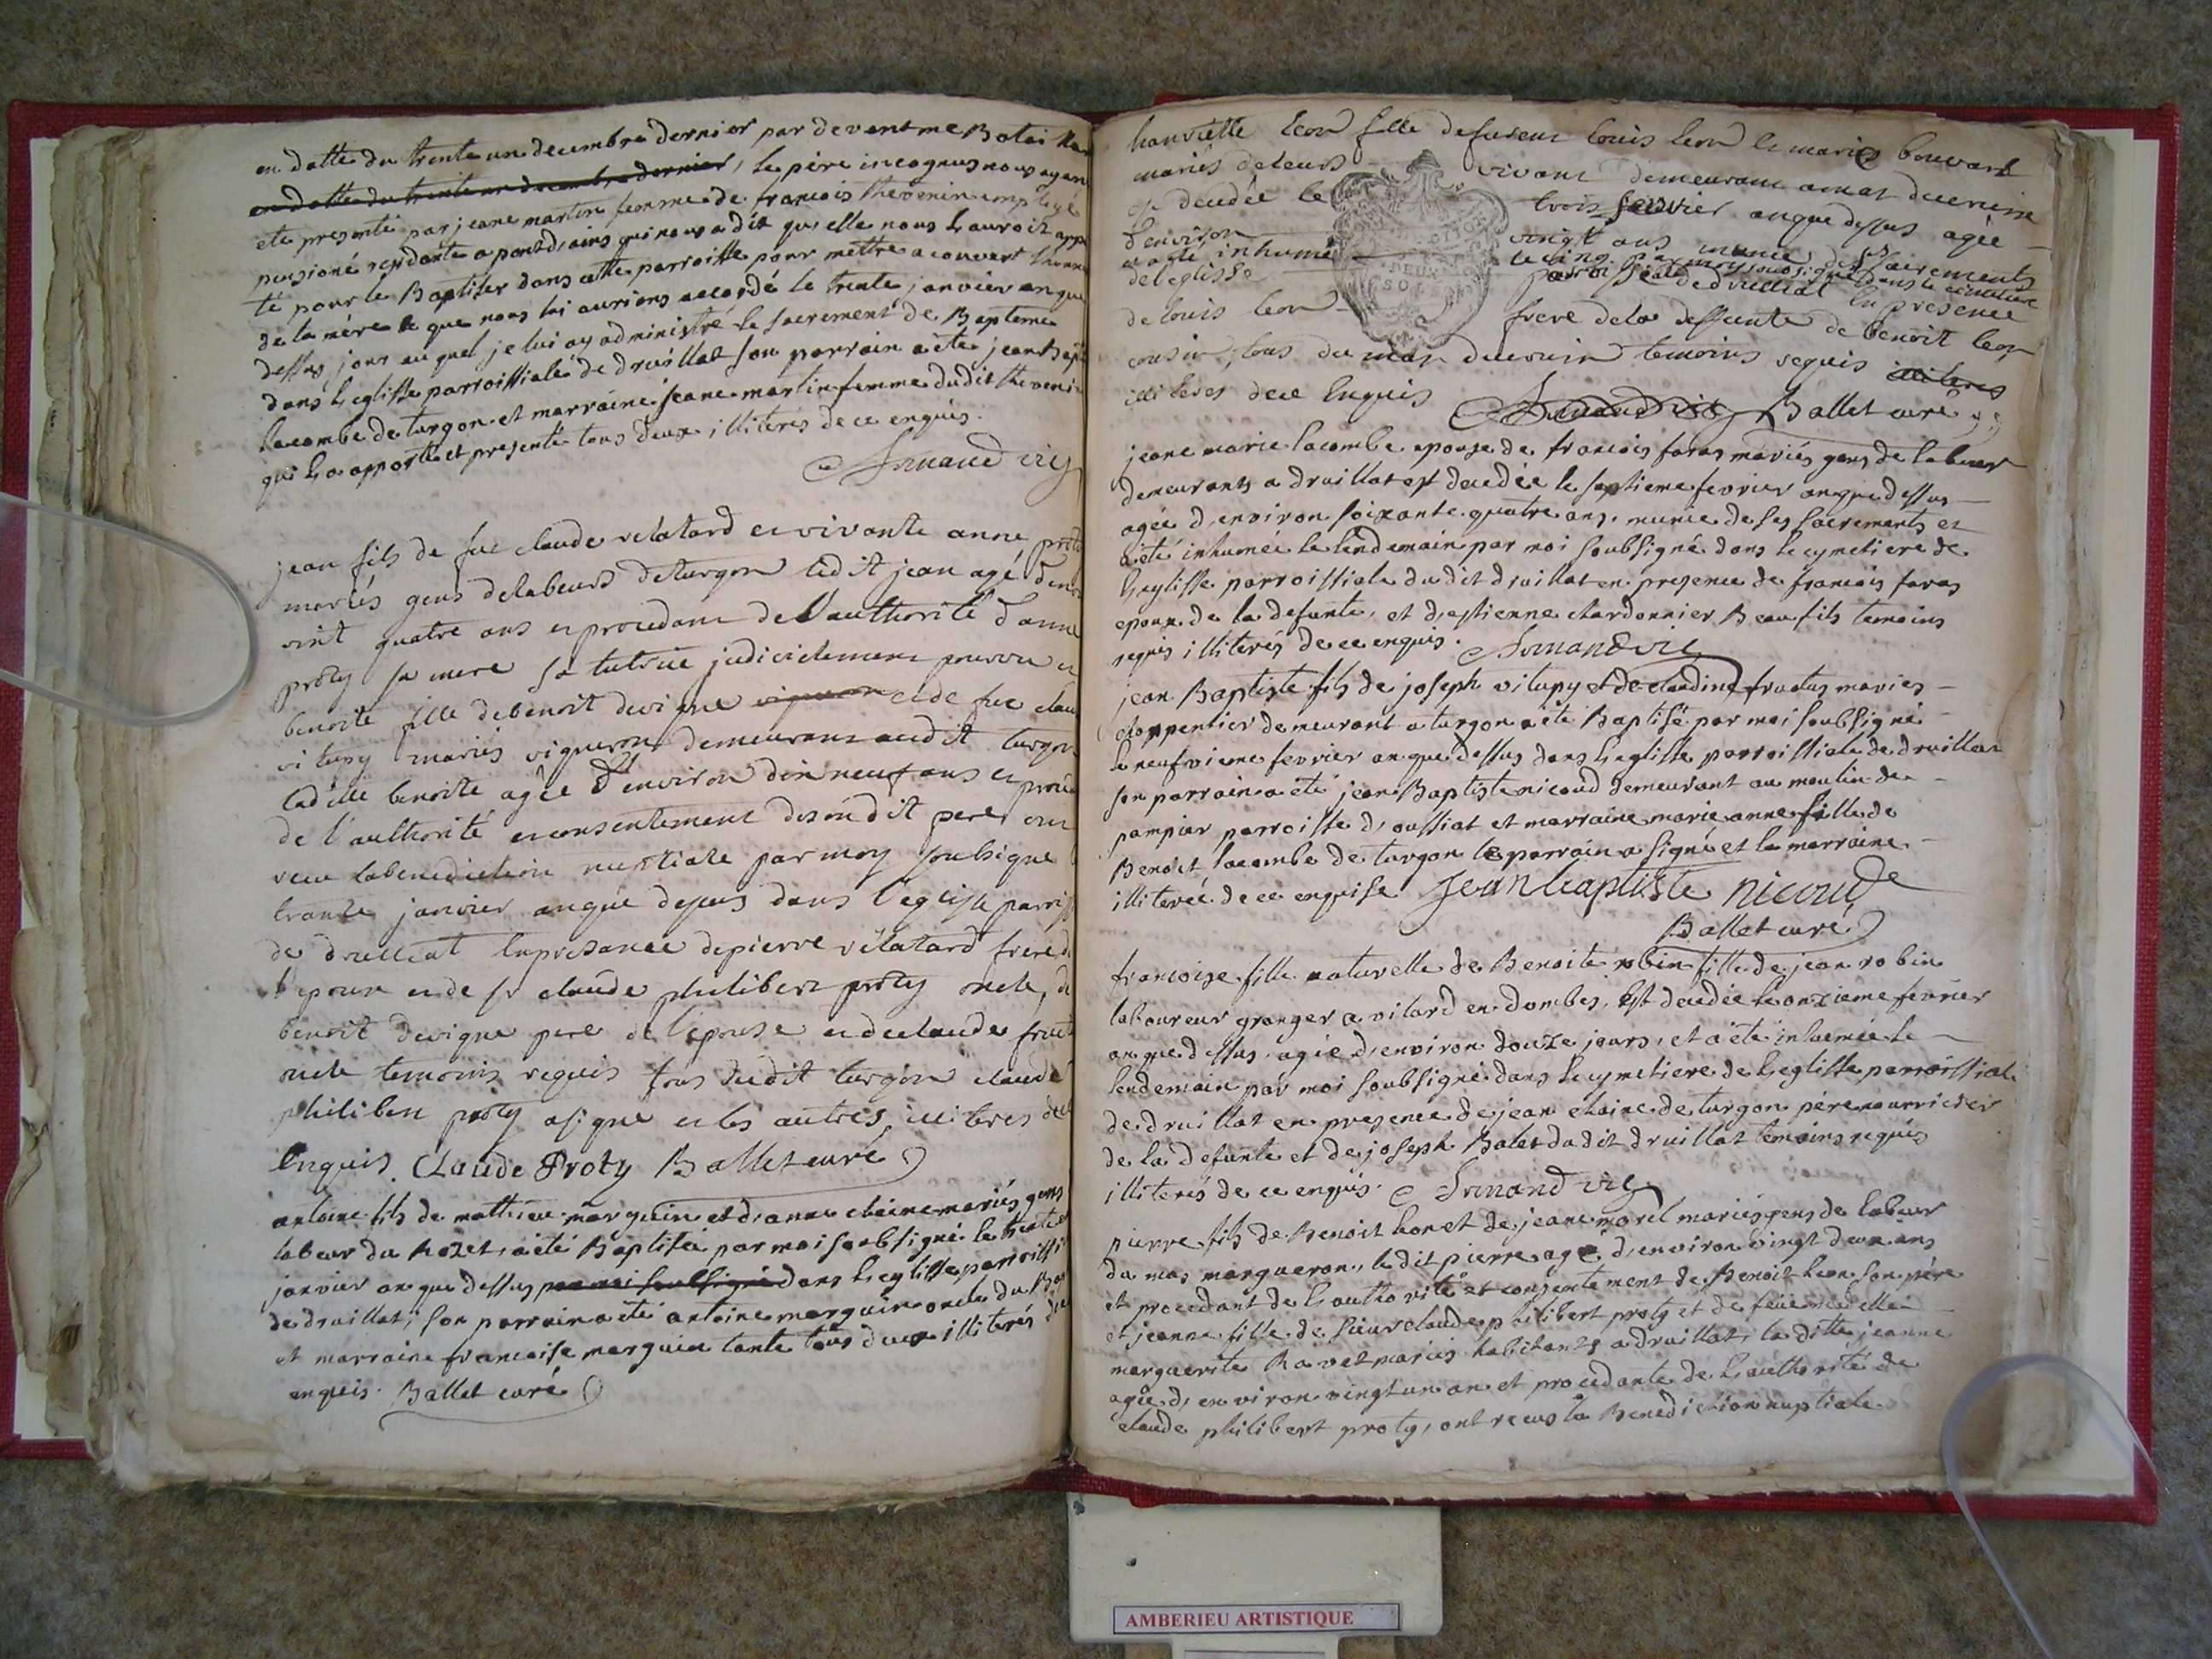 en datte du trente un decembre dernier par devent me Batai
en datte du trente un decembre dernier, le père incognus nous ayan
ete presenté par jeane martin femme de francois thevenin employé
pensioné residante a pontd,ains qui nous a dit qu,elle nous l,auroit app
té pour le Baptiser dans cette parroisse pour mettre a couvert l,honne
de la mère ce que nous lui aurions accordé le trente janvier an que
dessus jour au quel je lui ay administré le sacrement de Bapteme
dans l,eglisse parroissiale de druillat son parrain a été jean Bapt
lacombe de turgon et marraine jeane martin femme dudit theveni
qui l,a apporté et presenté tous deux illiterés de ce enquis.
Armand vic
jean fils de feu claude velatard et vivante anne proty
mariés gens delabeurs deturgon ledit jean agé denvi
vint quatre ans et procedant de l'authorité d'anne
proty sa mere sa tutrice judicielement pourvu et
benoite fille debenoit devigne vigneron et de feu clau
vitupy mariés vignerons demeurant audit turgon
ladille benoite agée d'environ dix neuf ans et procé
de l'authorité et consentement desondit pere ont
receu labenediction nuptiale par moy soubsigné
trante janvier anque dessus dans l'eglisse parroiss
de druillat enpresance depierre vélatard frere d
l'epoux et de sr claude philibert proty oncle, de
benoit devigne pere de l'epouse et declaude fruct
oncle temoins requis tous dudit turgon claude
philibert proty asigné et les autres illiteres dece
Enquis. Claude Proty Ballet curé
antoine fils de mathieu marguin et d,anne claine mariés gens
labeur du Rozet, a été Baptisée par moi soubsigné le trente
janvier an que dessus par moi soubsigné dans l,eglisse parroissi
de druillat; son parrain a été antoine marguin oncle du Bap
et marraine francoise marguin tante tous deux illiterés de
enquis. Ballet curé
hanriette leon fille defusieur louis leon et marie bouvard
mariés deleurs vivant demeurant amas ducruin
est decedée le trois fevrier anque dessus agée
d'environ vingt ans munie des sacrements
et a été inhumé le cinq par moy soussigné dans le cimetiere
del'eglisse parroissiale de druillat En presence
de louis leon frere dela deffunte de benoit leon
cousin, tous du mas ducruin temoins requis illiteres
illiteres dece Enquis Armand vic Ballet curé
jeane marie lacombe epouse de francois faras mariés gens de labeur
demeurants a druillat est decedée le septieme fevrier an que dessus
agée d,environ soixante quatre ans, munie de ses sacrements et
a été inhumée le lendemain par moi soubsigné dans le cymetiere de
l,eglisse parroissiale dudit druillat en presence de francois faras
epoux de la defunte, et d,estienne chardonnier Beaufils temoins
requis illiterés de ce enquis. Armand vic
jean Baptiste fils de joseph vitupy et de claudine fructus mariés
charpentier demeurant a turgon a été Baptisé par moi soubsigné
le neufvieme fevrier an que dessus dans l,eglisse parroissiale de druillat
son parrain a été jean Baptiste nicoud demeurant au moulin de
pampier parroisse d,oussiat et marraine marie anne fille de
Benoit lacombe de turgon le parrain a signé et la marraine
illiterée de ce enquise Jean baptiste nicoud
Ballet curé
francoise fille naturelle de Benoite robin fille de jean robin
laboureur granger a vilard en dombes, Est decedée le onzieme fevrier
an que dessus, agée d,environ douze jours, et a été inhumée le
lendemain par moi soubsigné dans le cymetiere de l,eglisse parroissiale
de druillat en presence de jean claine de turgon père nourricier
de la defunte et de joseph Balet dudit druillat temoins requis
illiterés de ce enquis. Armand vic
pierre fils de Benoit leon et de jeane morel mariés gens de labeur
du mas margueron, ledit pierre agé d,environ vingt deux ans
et procedant de l,authorité et consentement de Benoit leon son père
et jeanne fille de sieur claude philibert proty et de feue
marguerite Ravet mariés habitants a druillat, la ditte jeanne
agée d,environ vingt un an et procedante de l,authorité de
claude philibert proty, ont receus la Benediction nuptiale
AMBERIEU ARTISTIQUE